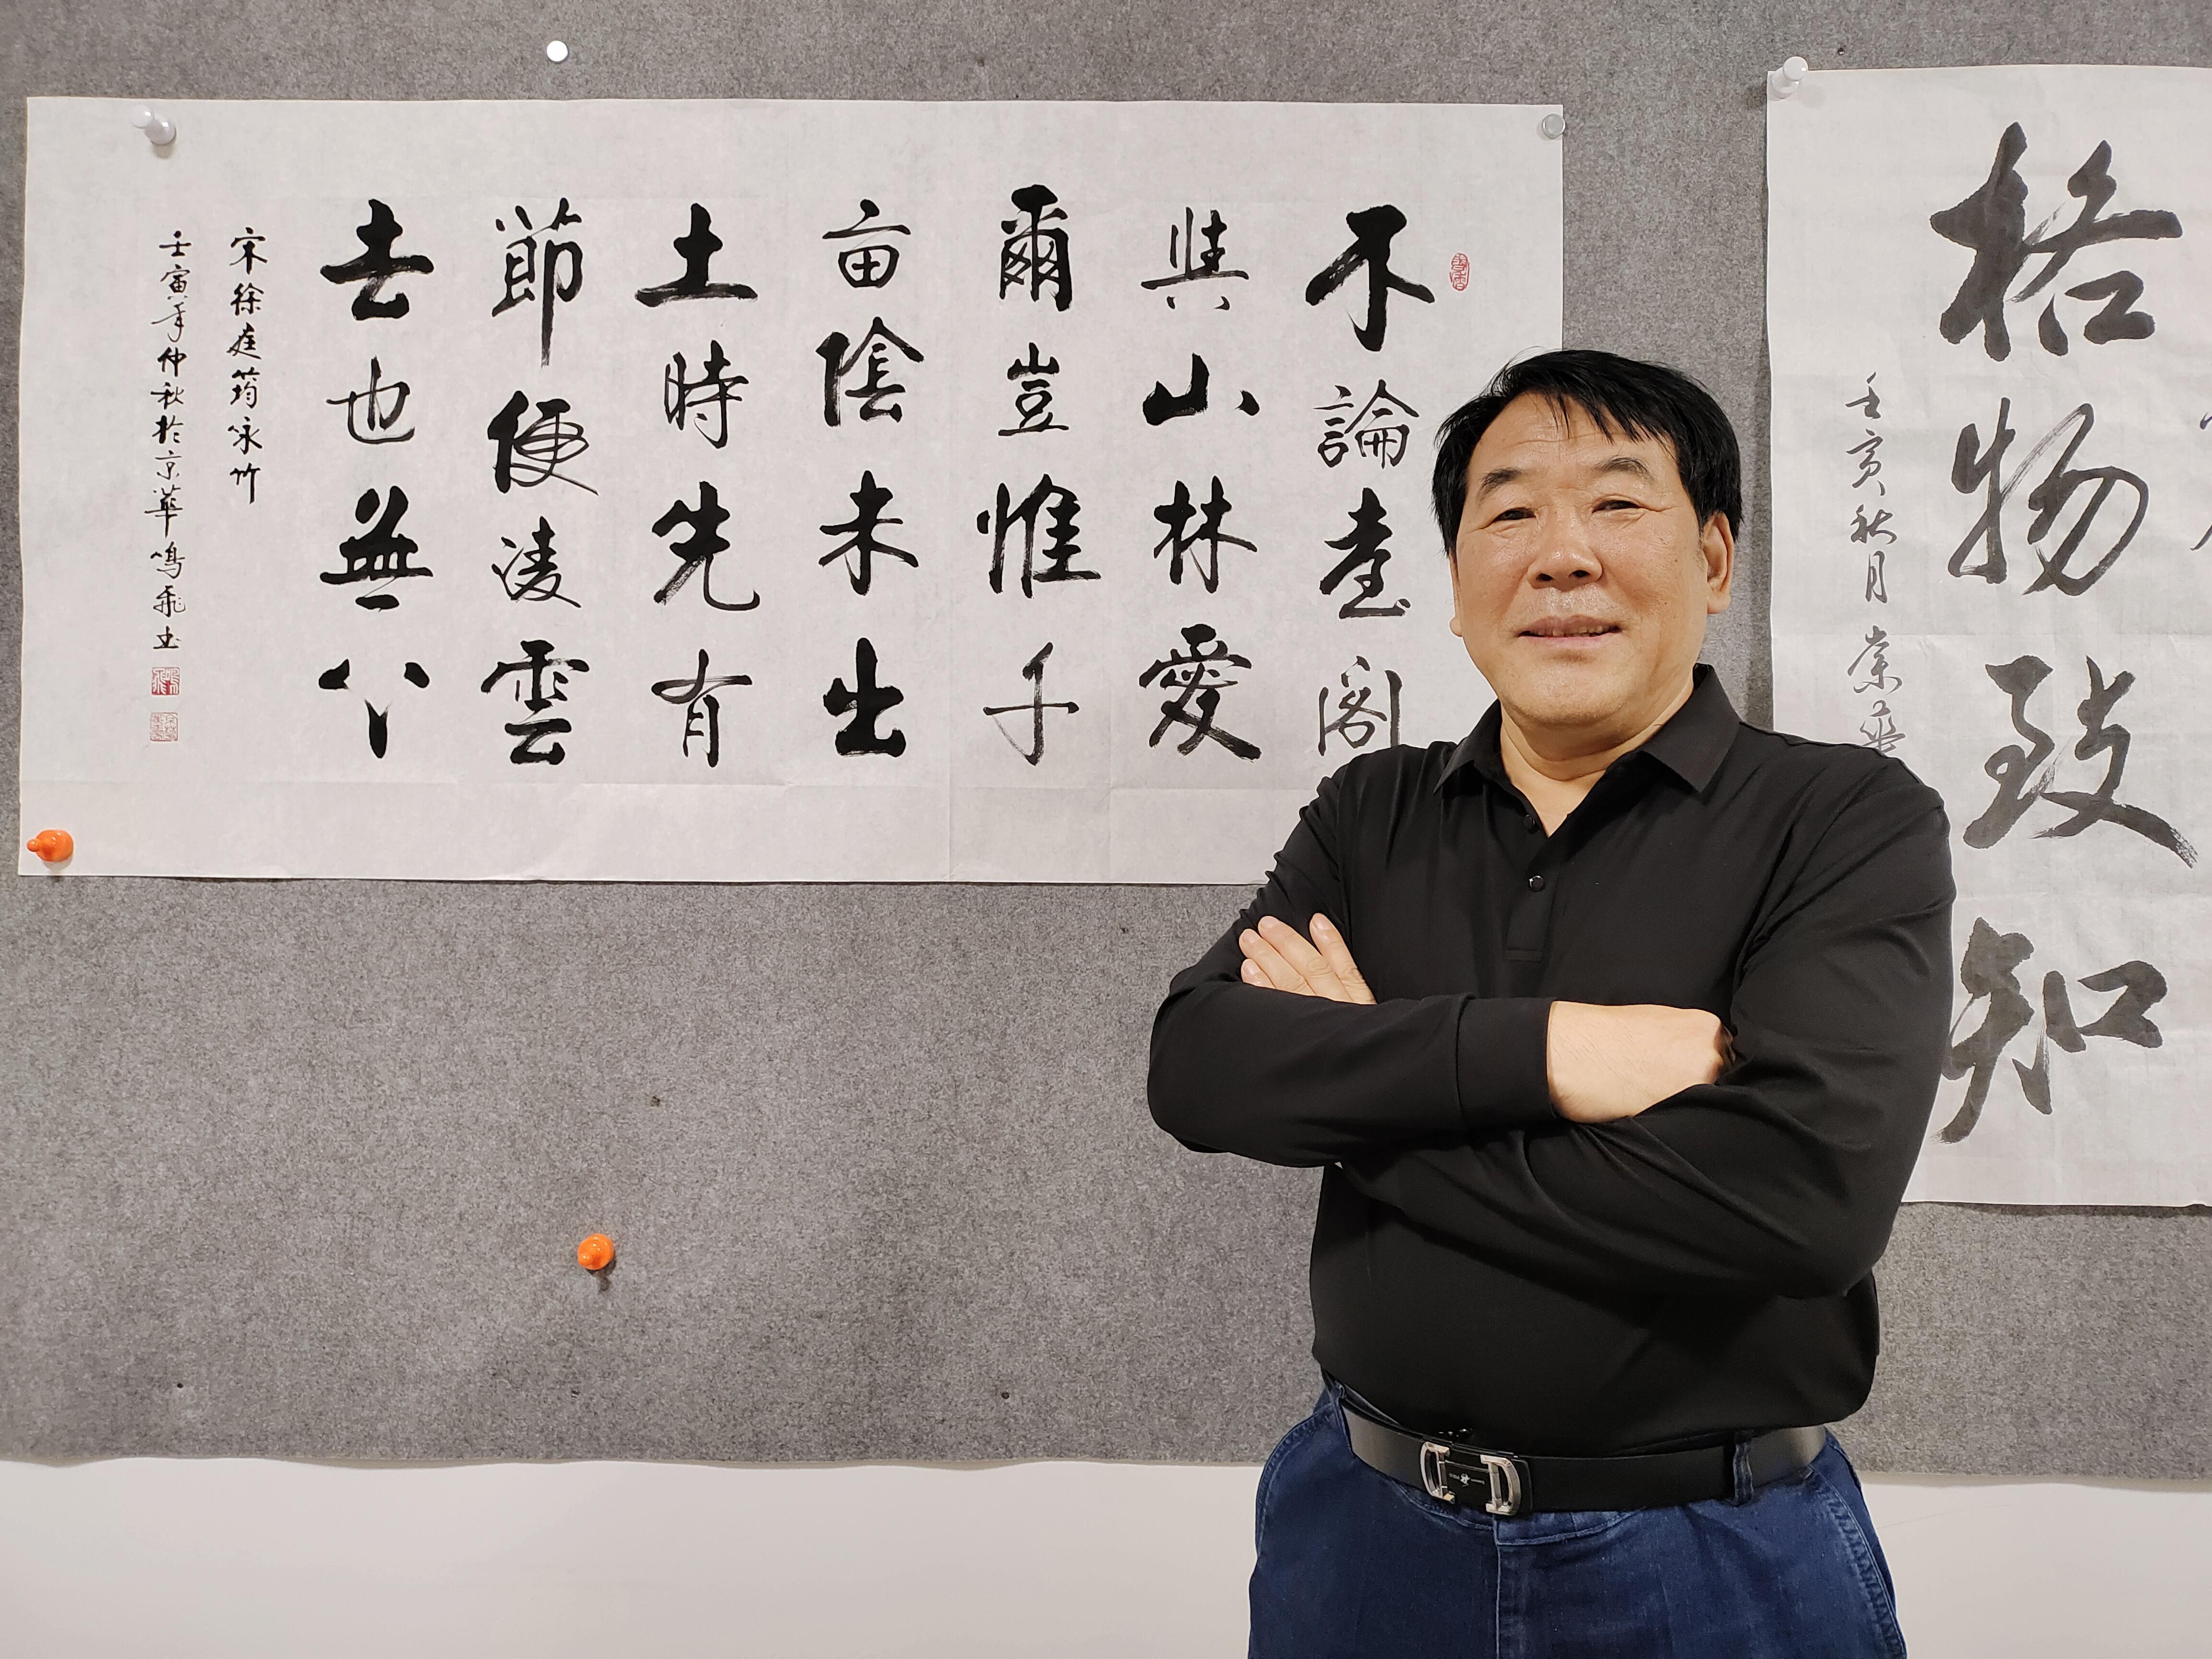 不論臺閣
與山林愛
爾豈惟千
亩陰未出
土時先有
節便凌雲
去也無心
宋徐庭筠咏竹
壬寅年仲秋於京華鳴飛书
格物致知
壬寅秋月榮華